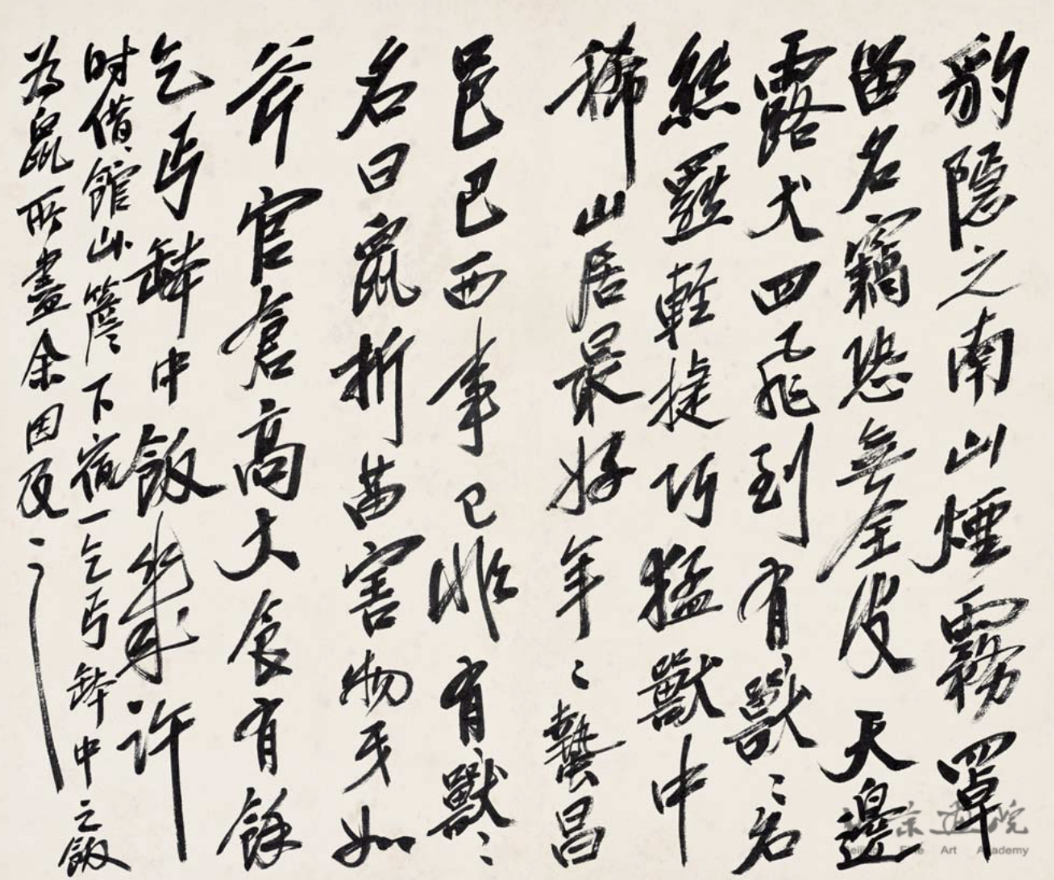 豹隱之南山煙霧罩
留名竊恐無全皮天邊
露犬四飛到有獸〻名
熊羆輕捷巧猛獸中
稀山居最好年〻蟄昌
邑巴西事已非有獸〻
名曰鼠折苗害物牙如
斧官倉高大食有餘
乞丐缽中飯幾許
时借館山簷下宿一乞丐缽中之飯
為鼠所盡余因及之
京画院
Beijing Fine Art Academy